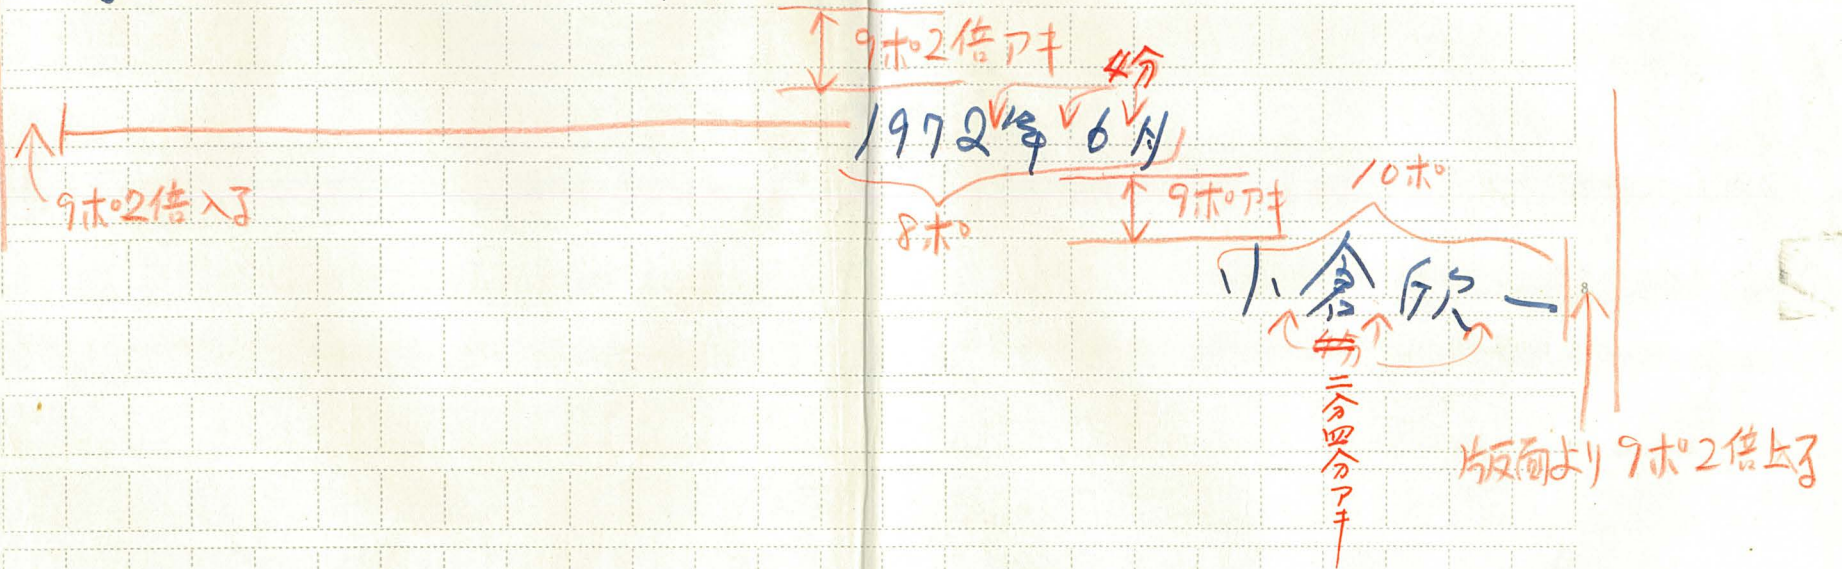 9ポ2倍アキ
4分
1972年6月
9ポ2倍入る
8ポ
9ポアキ
10ポ
小倉欣一
4分
二分四分アキ
版面より9ポ2倍上る
8